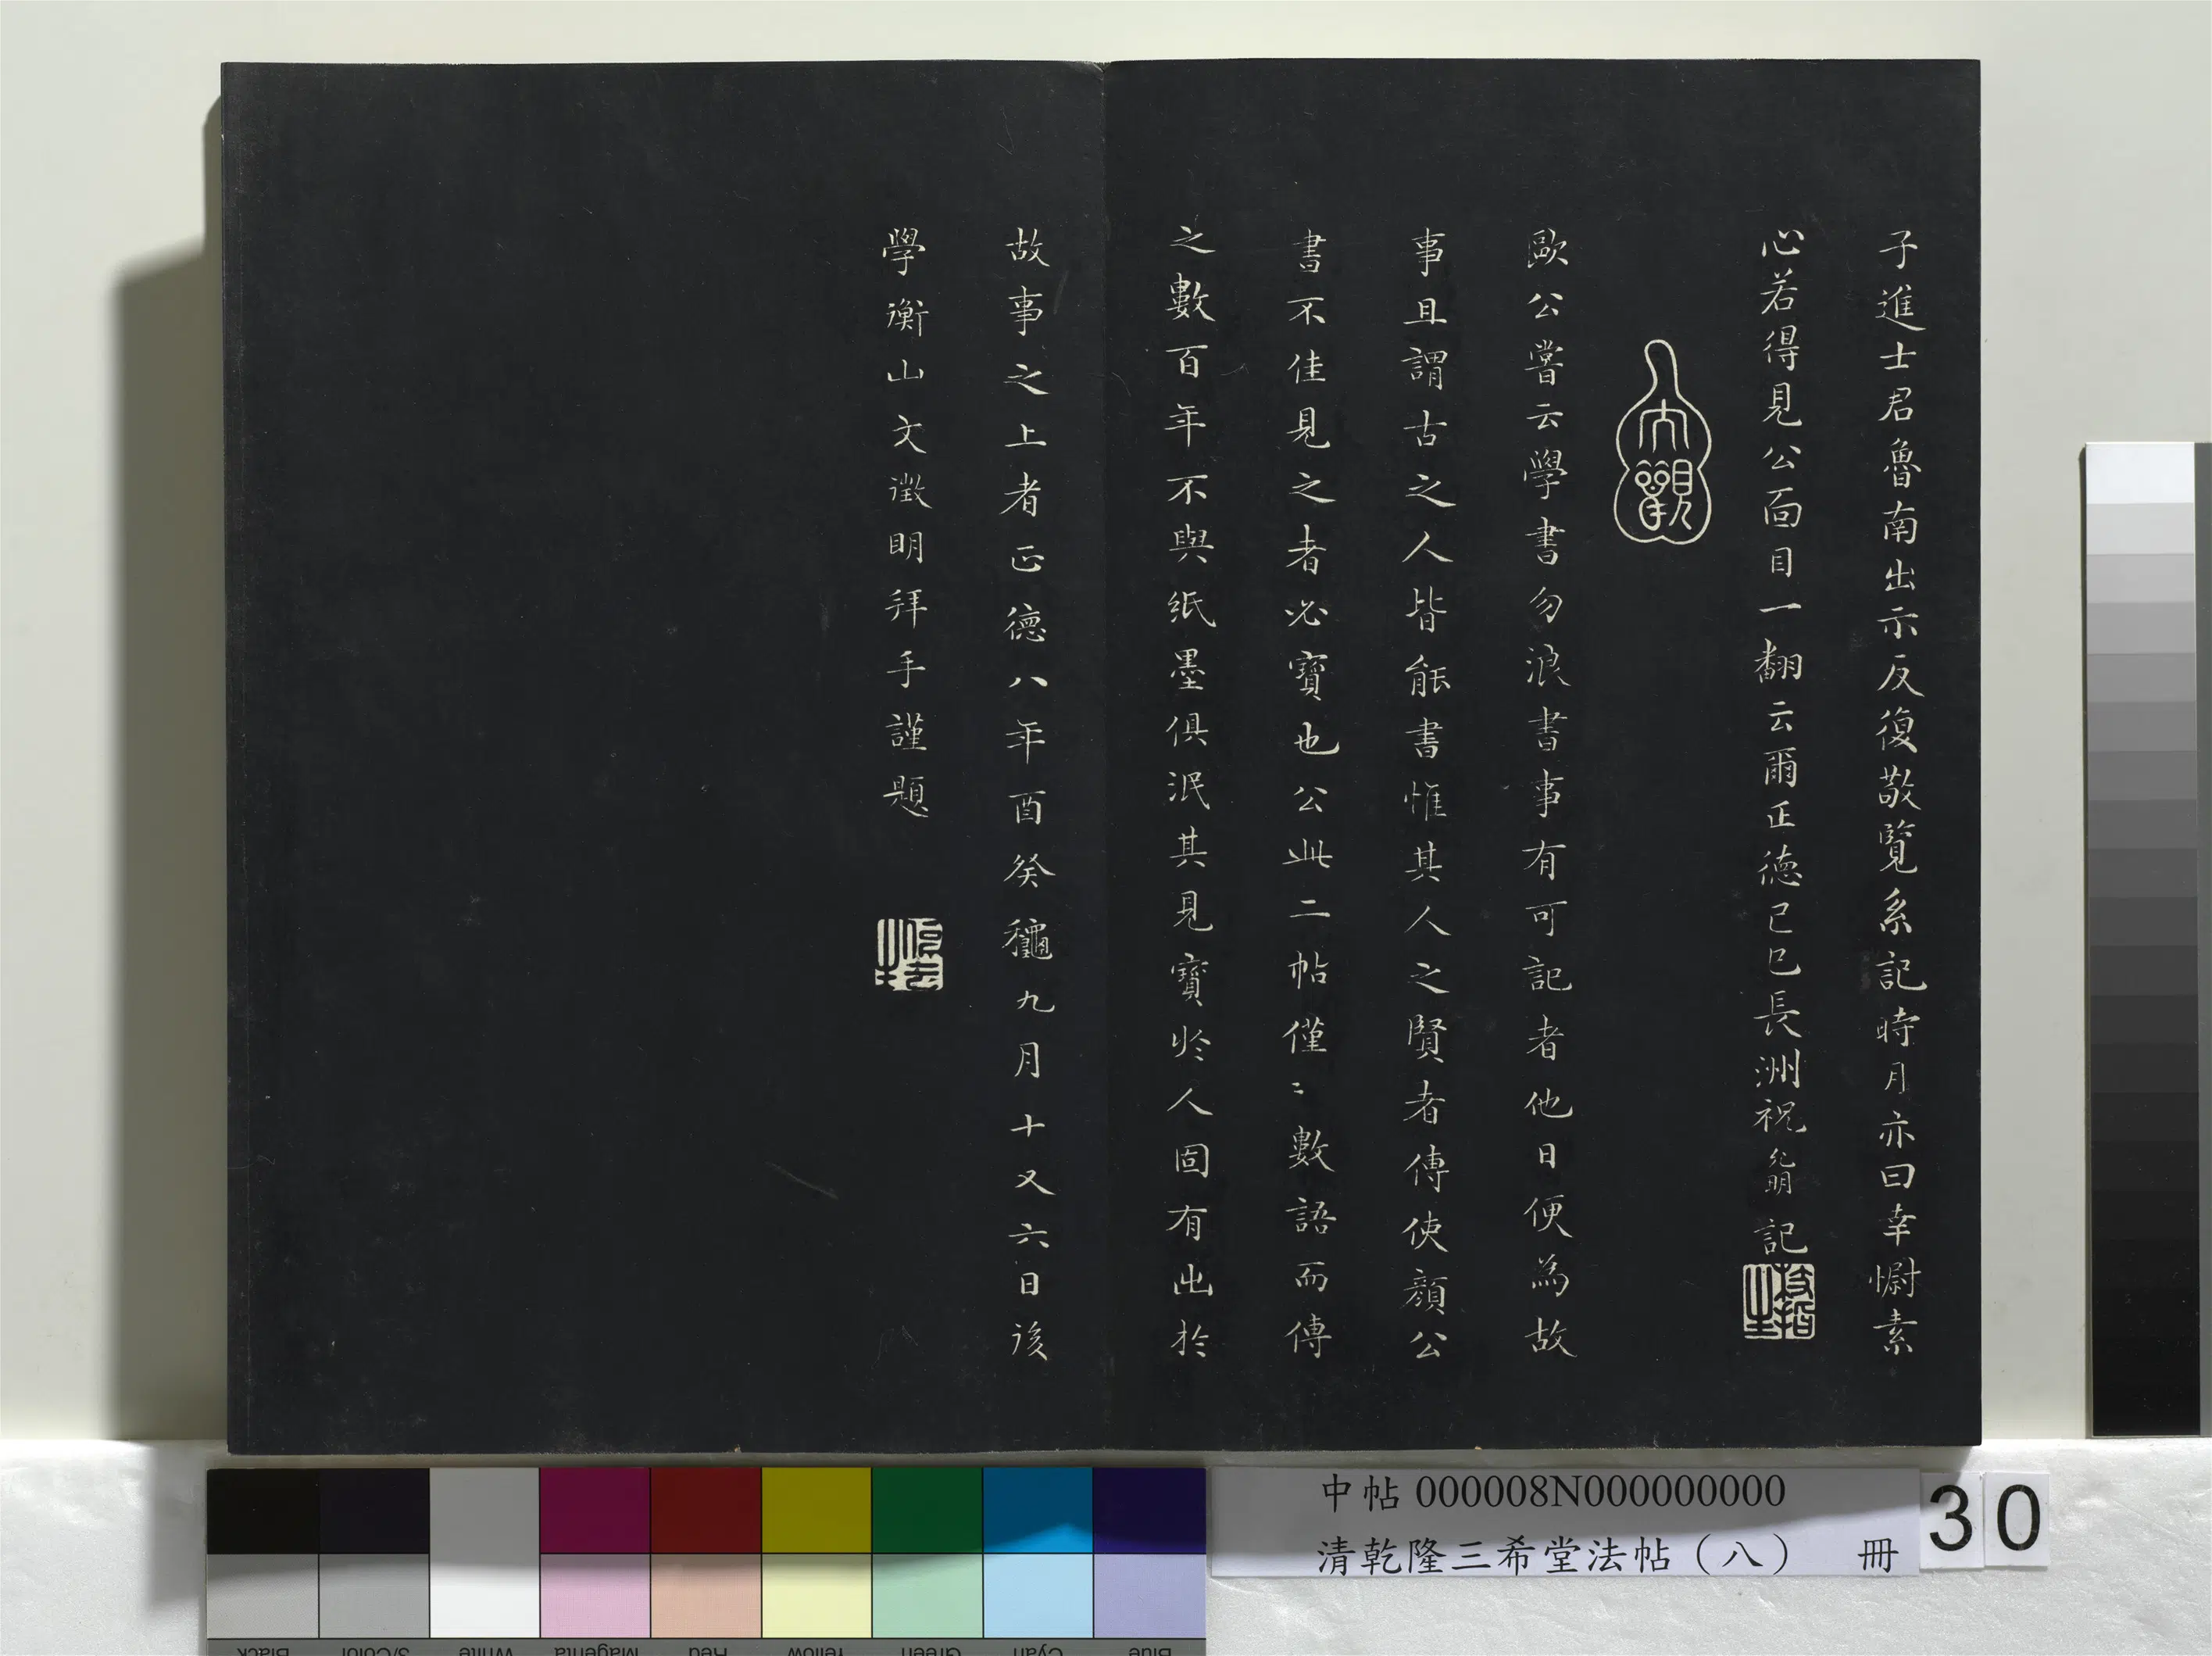 子進士君魯南出示反復敬覽系記時月亦曰幸慰素
心若得見公面目一翻云爾正德己巳長洲祝允明記
枝指生
大觀
歐公嘗云學書勿浪書事有可記者他日便為故
事且謂古之人皆能書惟其人之賢者傳使顏公
書不佳見之者必寶也公此二帖僅〻數語而傳
之數百年不與紙墨俱泯其見寶於人固有出於
故事之上者正德八年酉癸龝九月十又六日後
學衡山文徵明拜手謹題
中帖 000008N000000000
清乾隆三希堂法帖（八） 冊
30
Blue Cyan Green Yellow Red Magenta White 3/Color Black